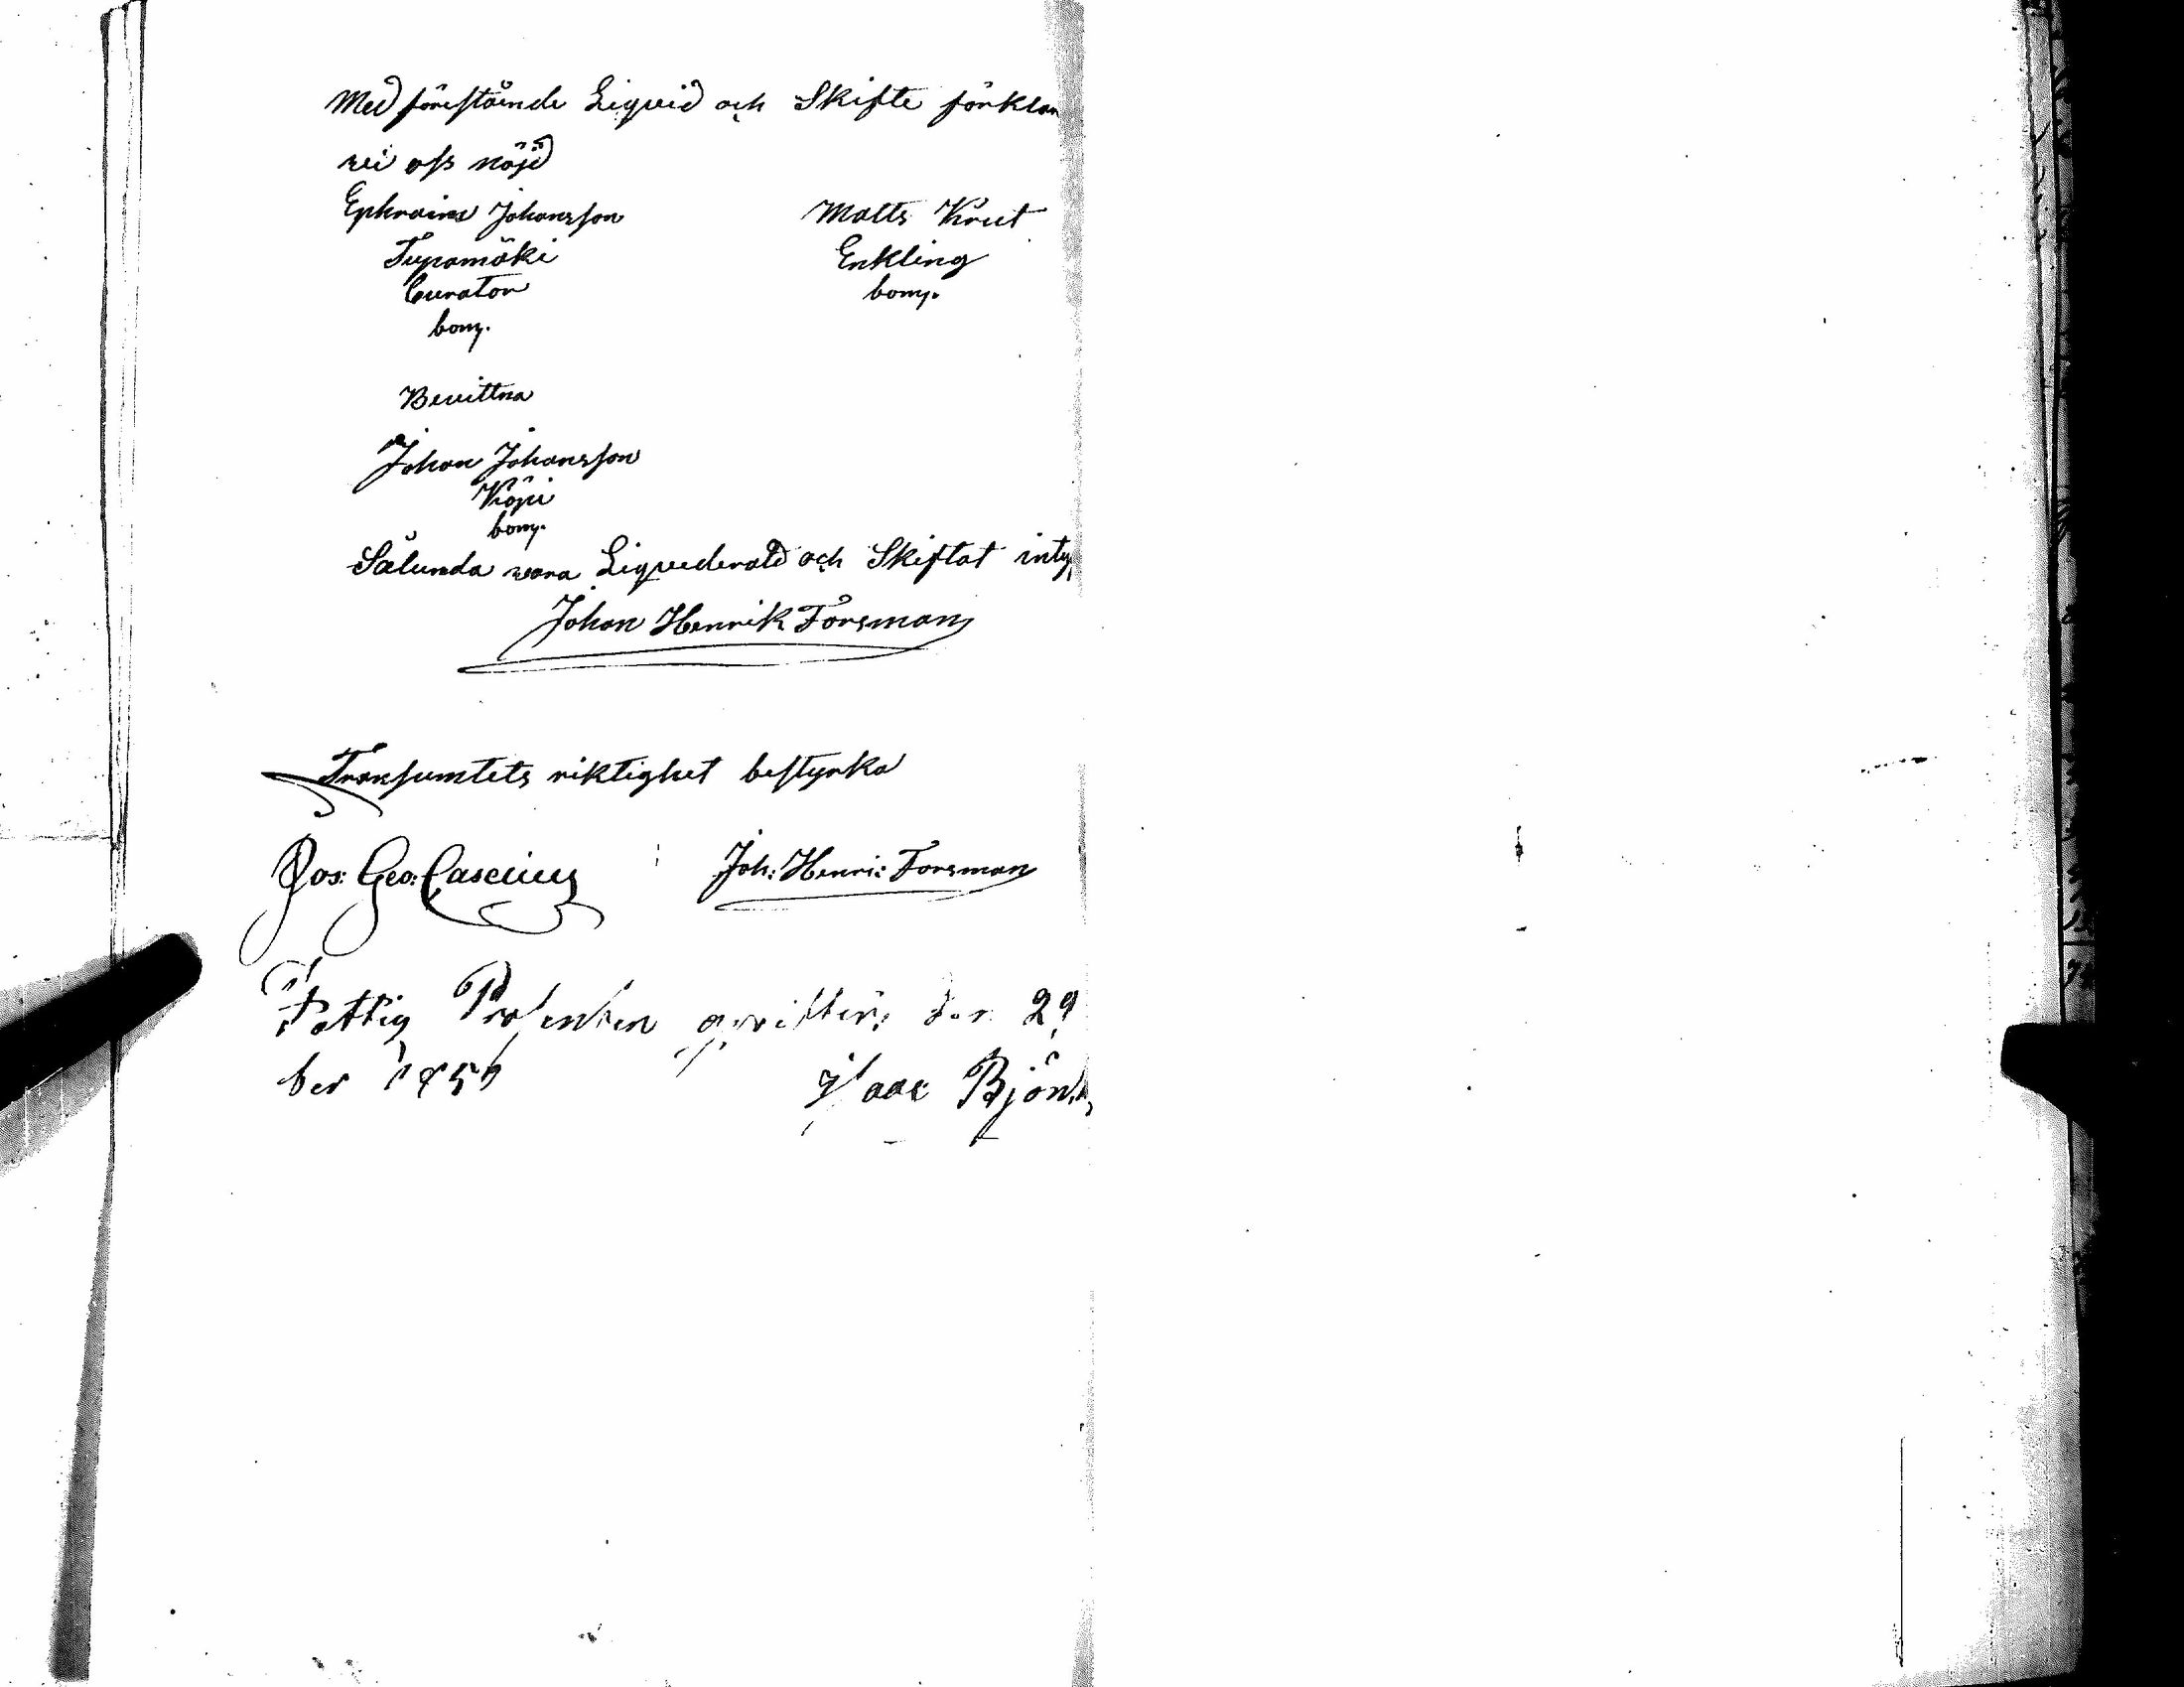 Med förestående Liqvid och Skifte förklar
vi oss nöjd
Ephraim Johansson Matts Krut
Tupamäki Enkling
Curator bomr.
bomr.
Bevittna
Johan Johansson
Köpi
bomr.
Sålunda vara Liqviderat och Skiftat inty
Johan Henrik Forsman
Transumtets riktighet bestyrka
Jos: Geo: Casenius Joh: Henric Forsman
Fattig Prosenten qvitteras den 29
ber 185 Isaac Björk